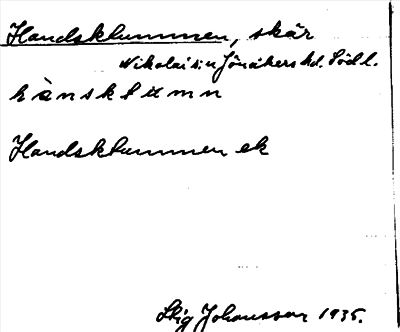 Handsklummen, skär
Nikolai s:n Jönåkers hd. Södl.
hànsklumn
Handsklummen ek
Stig Johansson 1935.